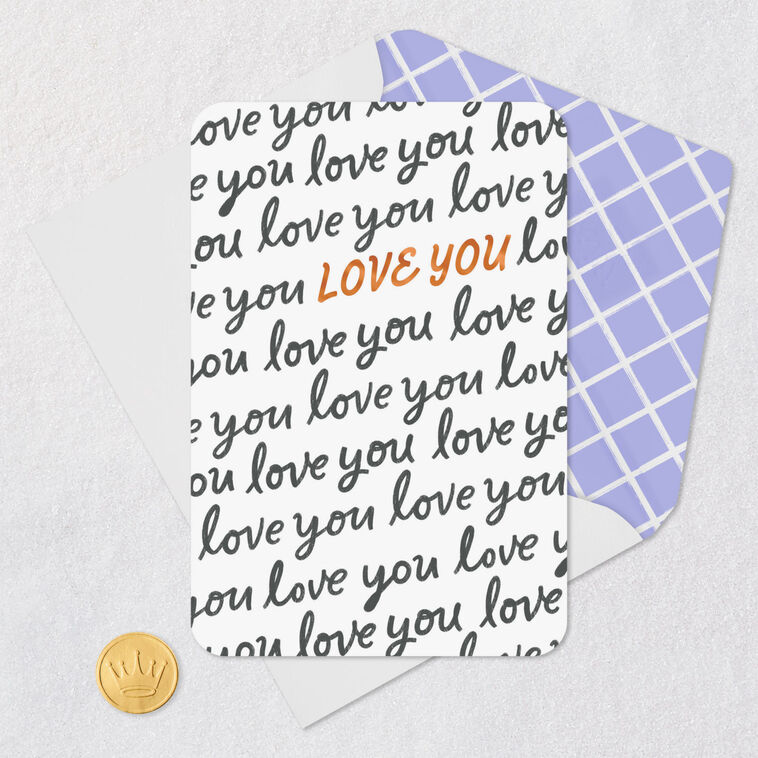 love you lov
e you love you love
you love you love y
ve you LOVE YOU lov
you love you love y
e you love you love
ou love you love yo
love you love you
you love you love y
you love you love
love